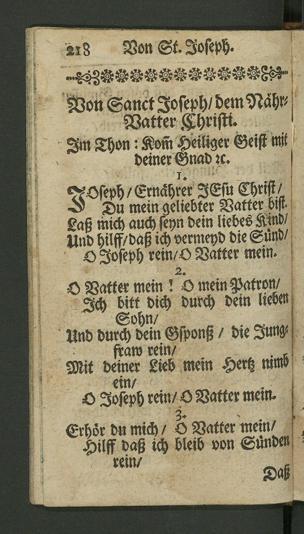 218 Von St. Joseph.
Von Sanct Joseph/ dem Nähr-
Vatter Christi.
Im Thon: Kom̃ Heiliger Geist mit
deiner Gnad ꝛc.
1.
JOseph/ Ernährer JEsu Christ/
Du mein geliebter Vatter bist.
Laß mich auch seyn dein liebes Kind/
Und hilff/ daß ich vermeyd die Sünd/
O Joseph rein/ O Vatter mein.
2.
O Vatter mein! O mein Patron/
Ich bitt dich durch dein lieben
Sohn/
Und durch dein Gsponß/ die Jung-
fraw rein/
Mit deiner Lieb mein Hertz nimb
ein/
O Joseph rein/ O Vatter mein.
3.
Erhör du mich/ O Vatter mein/
Hilff daß ich bleib von Sünden
rein/
Daß